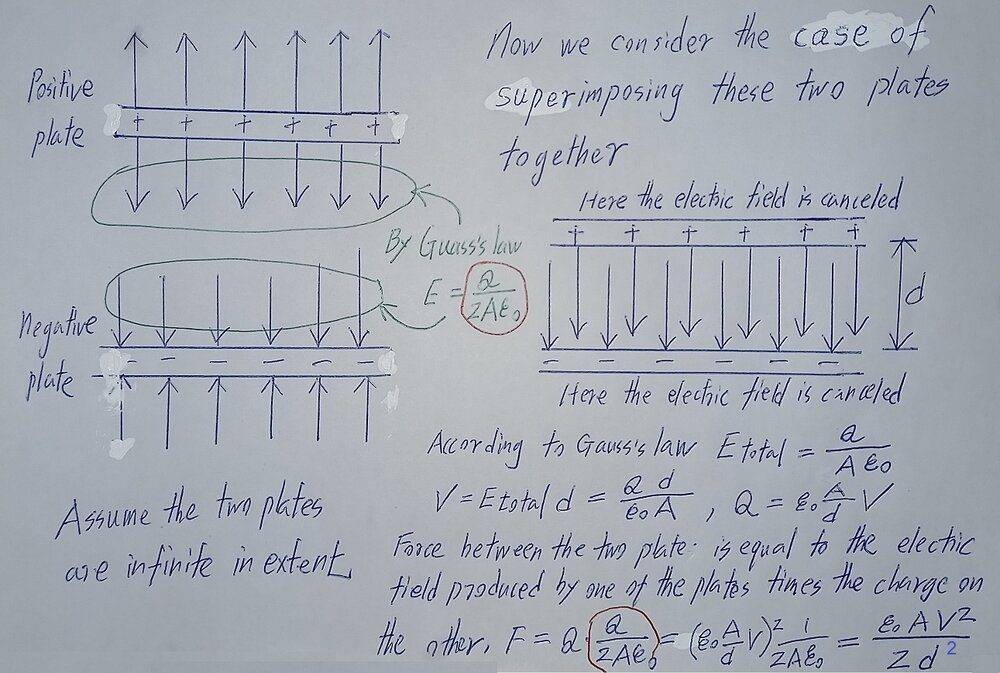 Positive
plate
+ + + + + +
Negative
plate
− − − − − −
By Guass's law
E = Q/2Aε₀
Assume the two plates
are infinite in extent
Now we consider the case of
superimposing these two plates
together
Here the electric field is canceled
+ + + + + +
d
− − − − − −
Here the electric field is canceled
According to Gauss's law E total = Q/Aε₀
V = E total d = Q d/ε₀ A , Q = ε₀ A/d V
Force between the two plate. is equal to the electric
field produced by one of the plates times the charge on
the other. F = Q · Q/2Aε₀ = (ε₀ A/d V)² 1/2Aε₀ = ε₀ A V²/2 d²